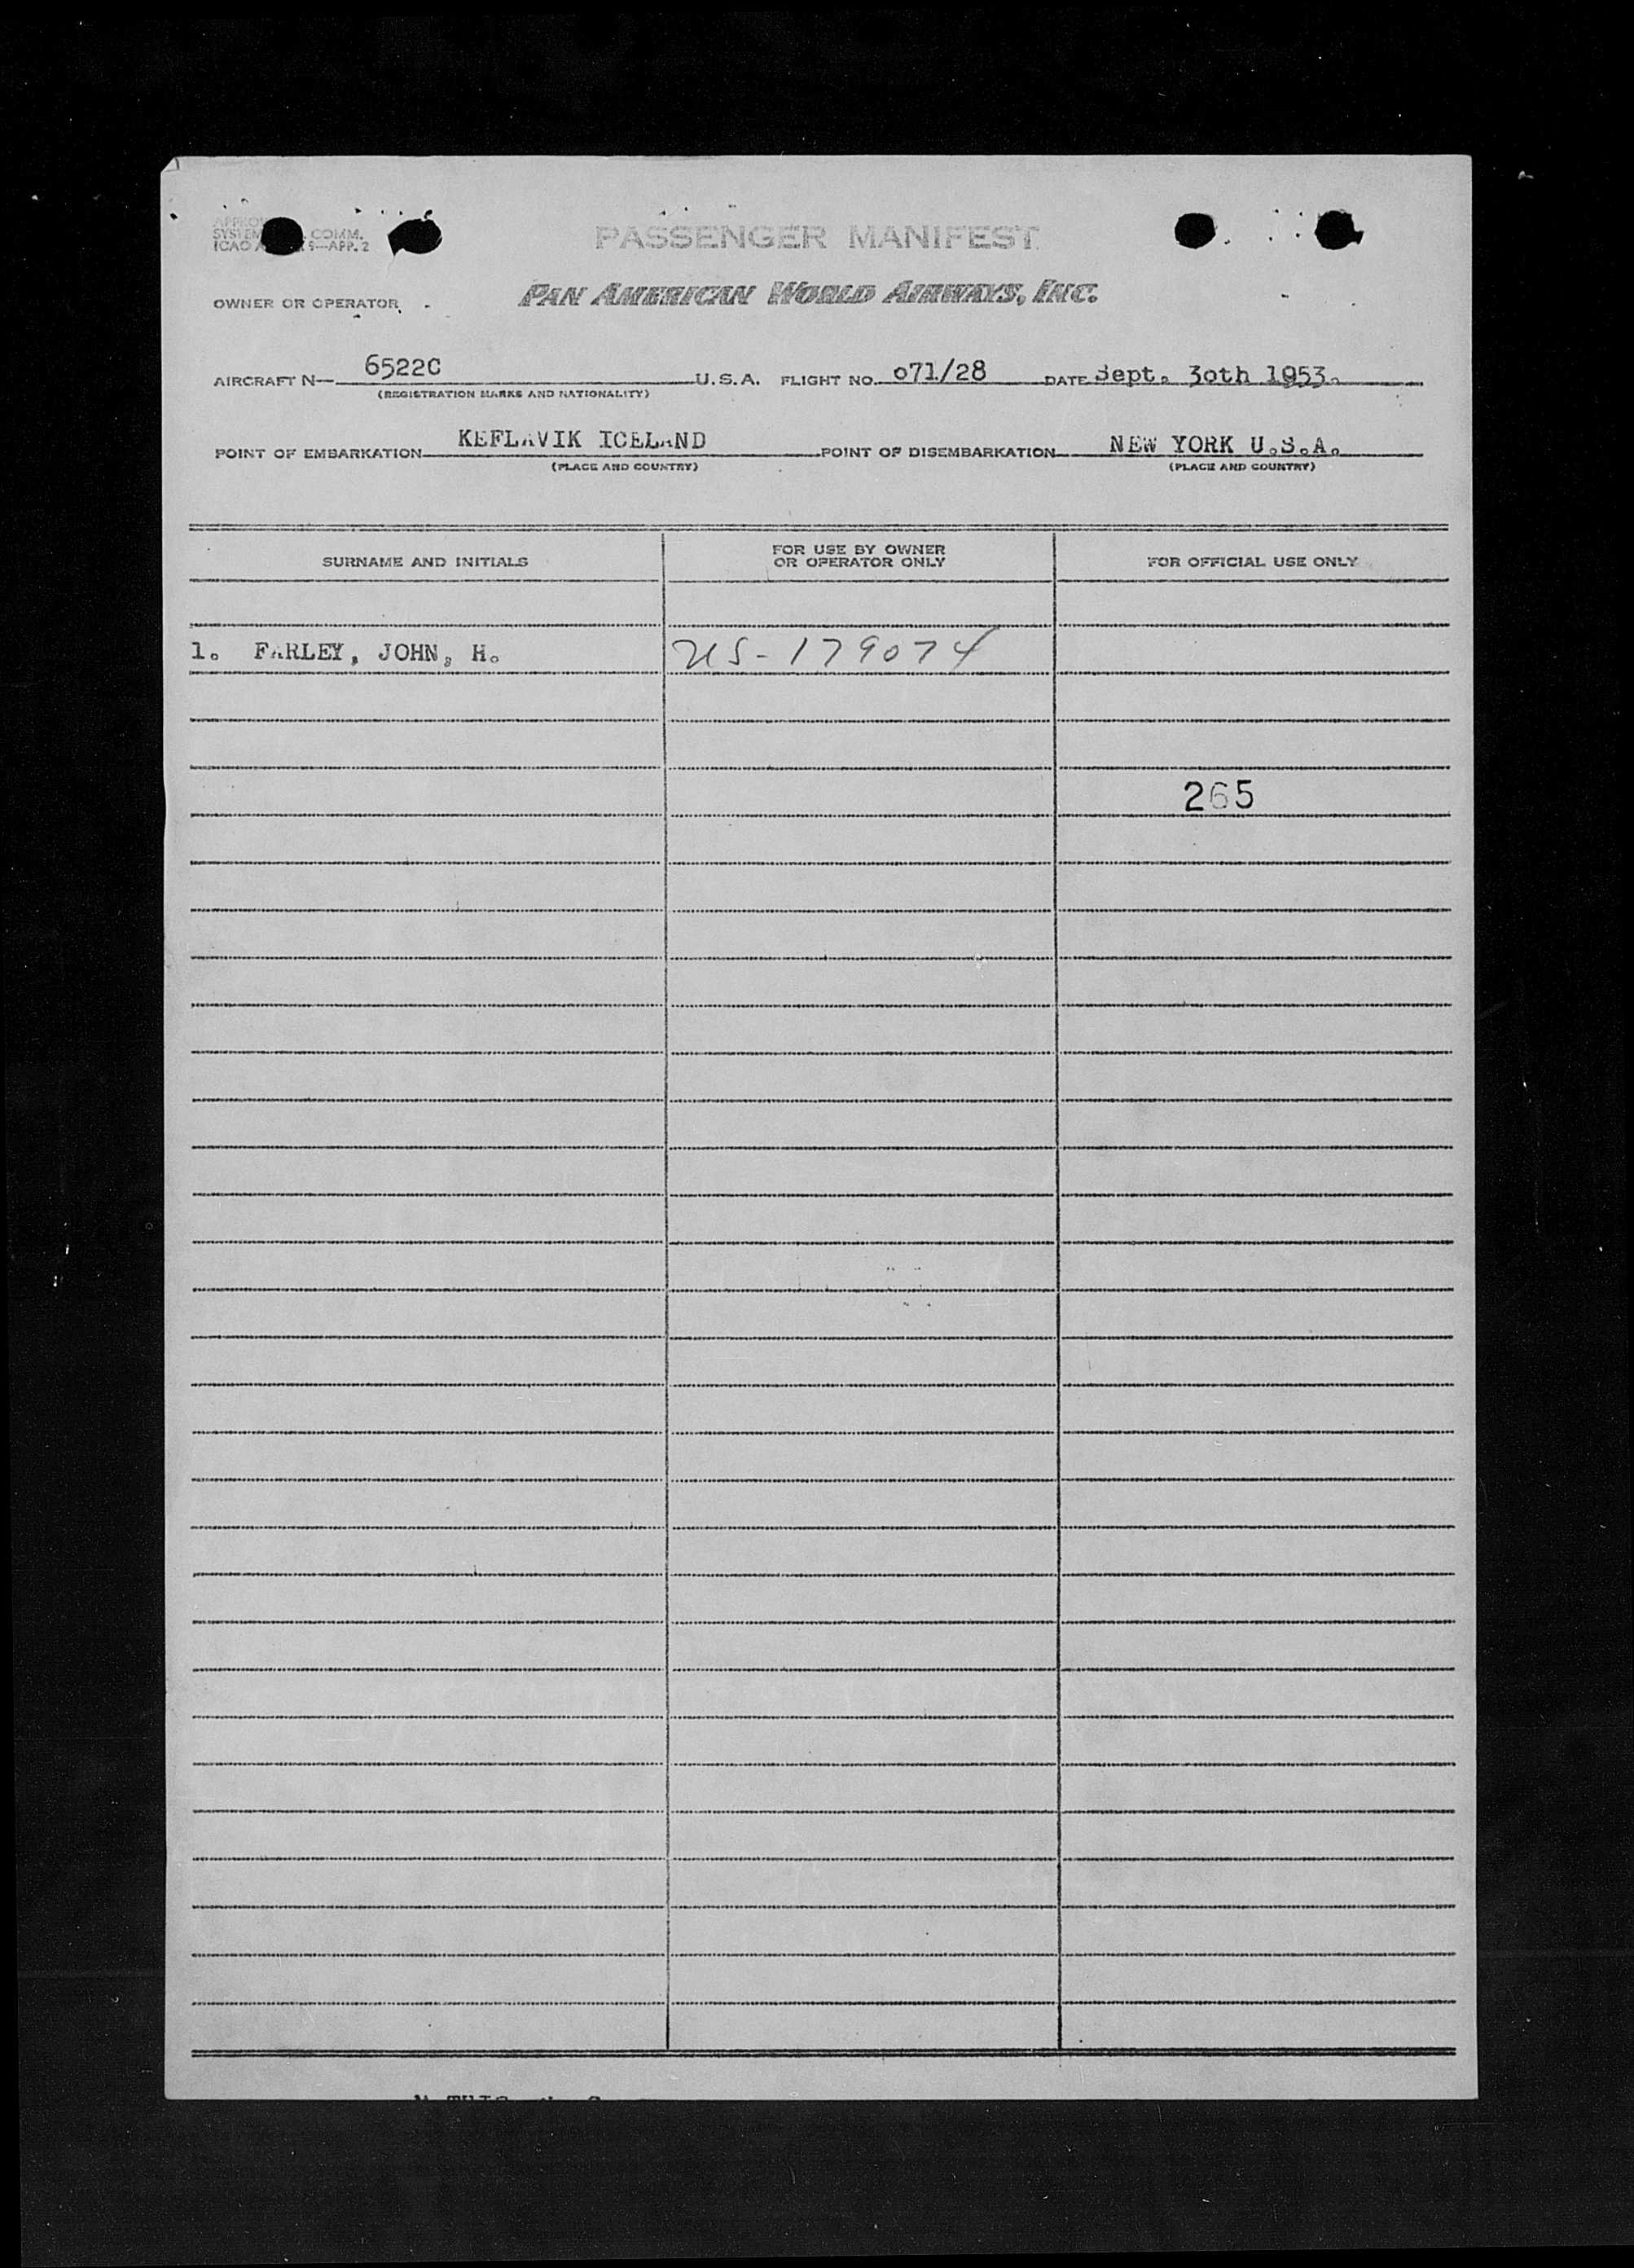 PASSENGER MANIFEST
COMM.
ICAO 9—APP. 2
OWNER OR OPERATOR PAN AMERICAN WORLD AIRWAYS, INC.
AIRCRAFT N— 6522C U.S.A. FLIGHT NO. o71/28 DATE Sept. 3oth 1953.
(REGISTRATION MARKS AND NATIONALITY)
POINT OF EMBARKATION KEFLAVIK ICELAND POINT OF DISEMBARKATION NEW YORK U.S.A.
(PLACE AND COUNTRY) (PLACE AND COUNTRY)
SURNAME AND INITIALS FOR USE BY OWNER OR OPERATOR ONLY FOR OFFICIAL USE ONLY
1. FARLEY, JOHN, H. US-179074
265